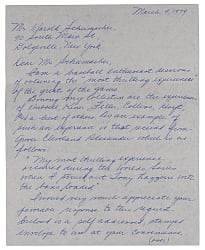 March 9, 1979
Mr. Harold Schumacher,
90 South Main St.,
Dolgeville, New York
Dear Mr. Schumacher,
I am a baseball enthusiast desirous
of obtaining the "most thrilling experiences"
of the greats of the game.
Among my collection are the experiences
of Hubbell, Klein, Feller, Collins, Hoyt,
and a host of others. As an example of
such an experience is that received from
Grover Cleveland Alexander which is as
follows:
"My most thrilling experience
occurred during the World Series
when I struck out Tony Lazzeri with
the bases loaded."
I would very much appreciate your
response to this request.
Enclosed is a self addressed, stamped
envelope to use at your convenience.
(over)